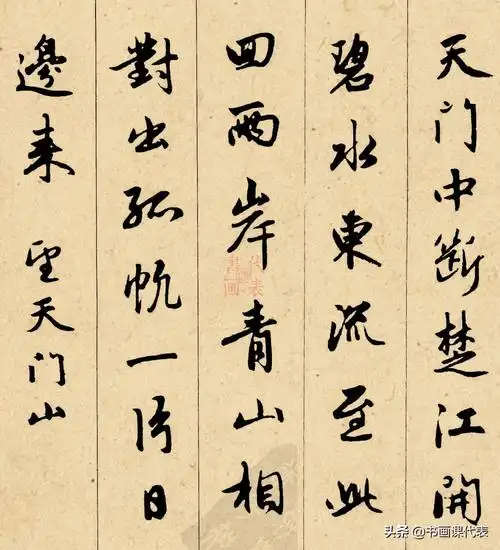 天门中断楚江開
碧水東流至此
回两岸青山相
對出孤帆一片日
邊来 望天门山
書画代表
头条 @书画课代表